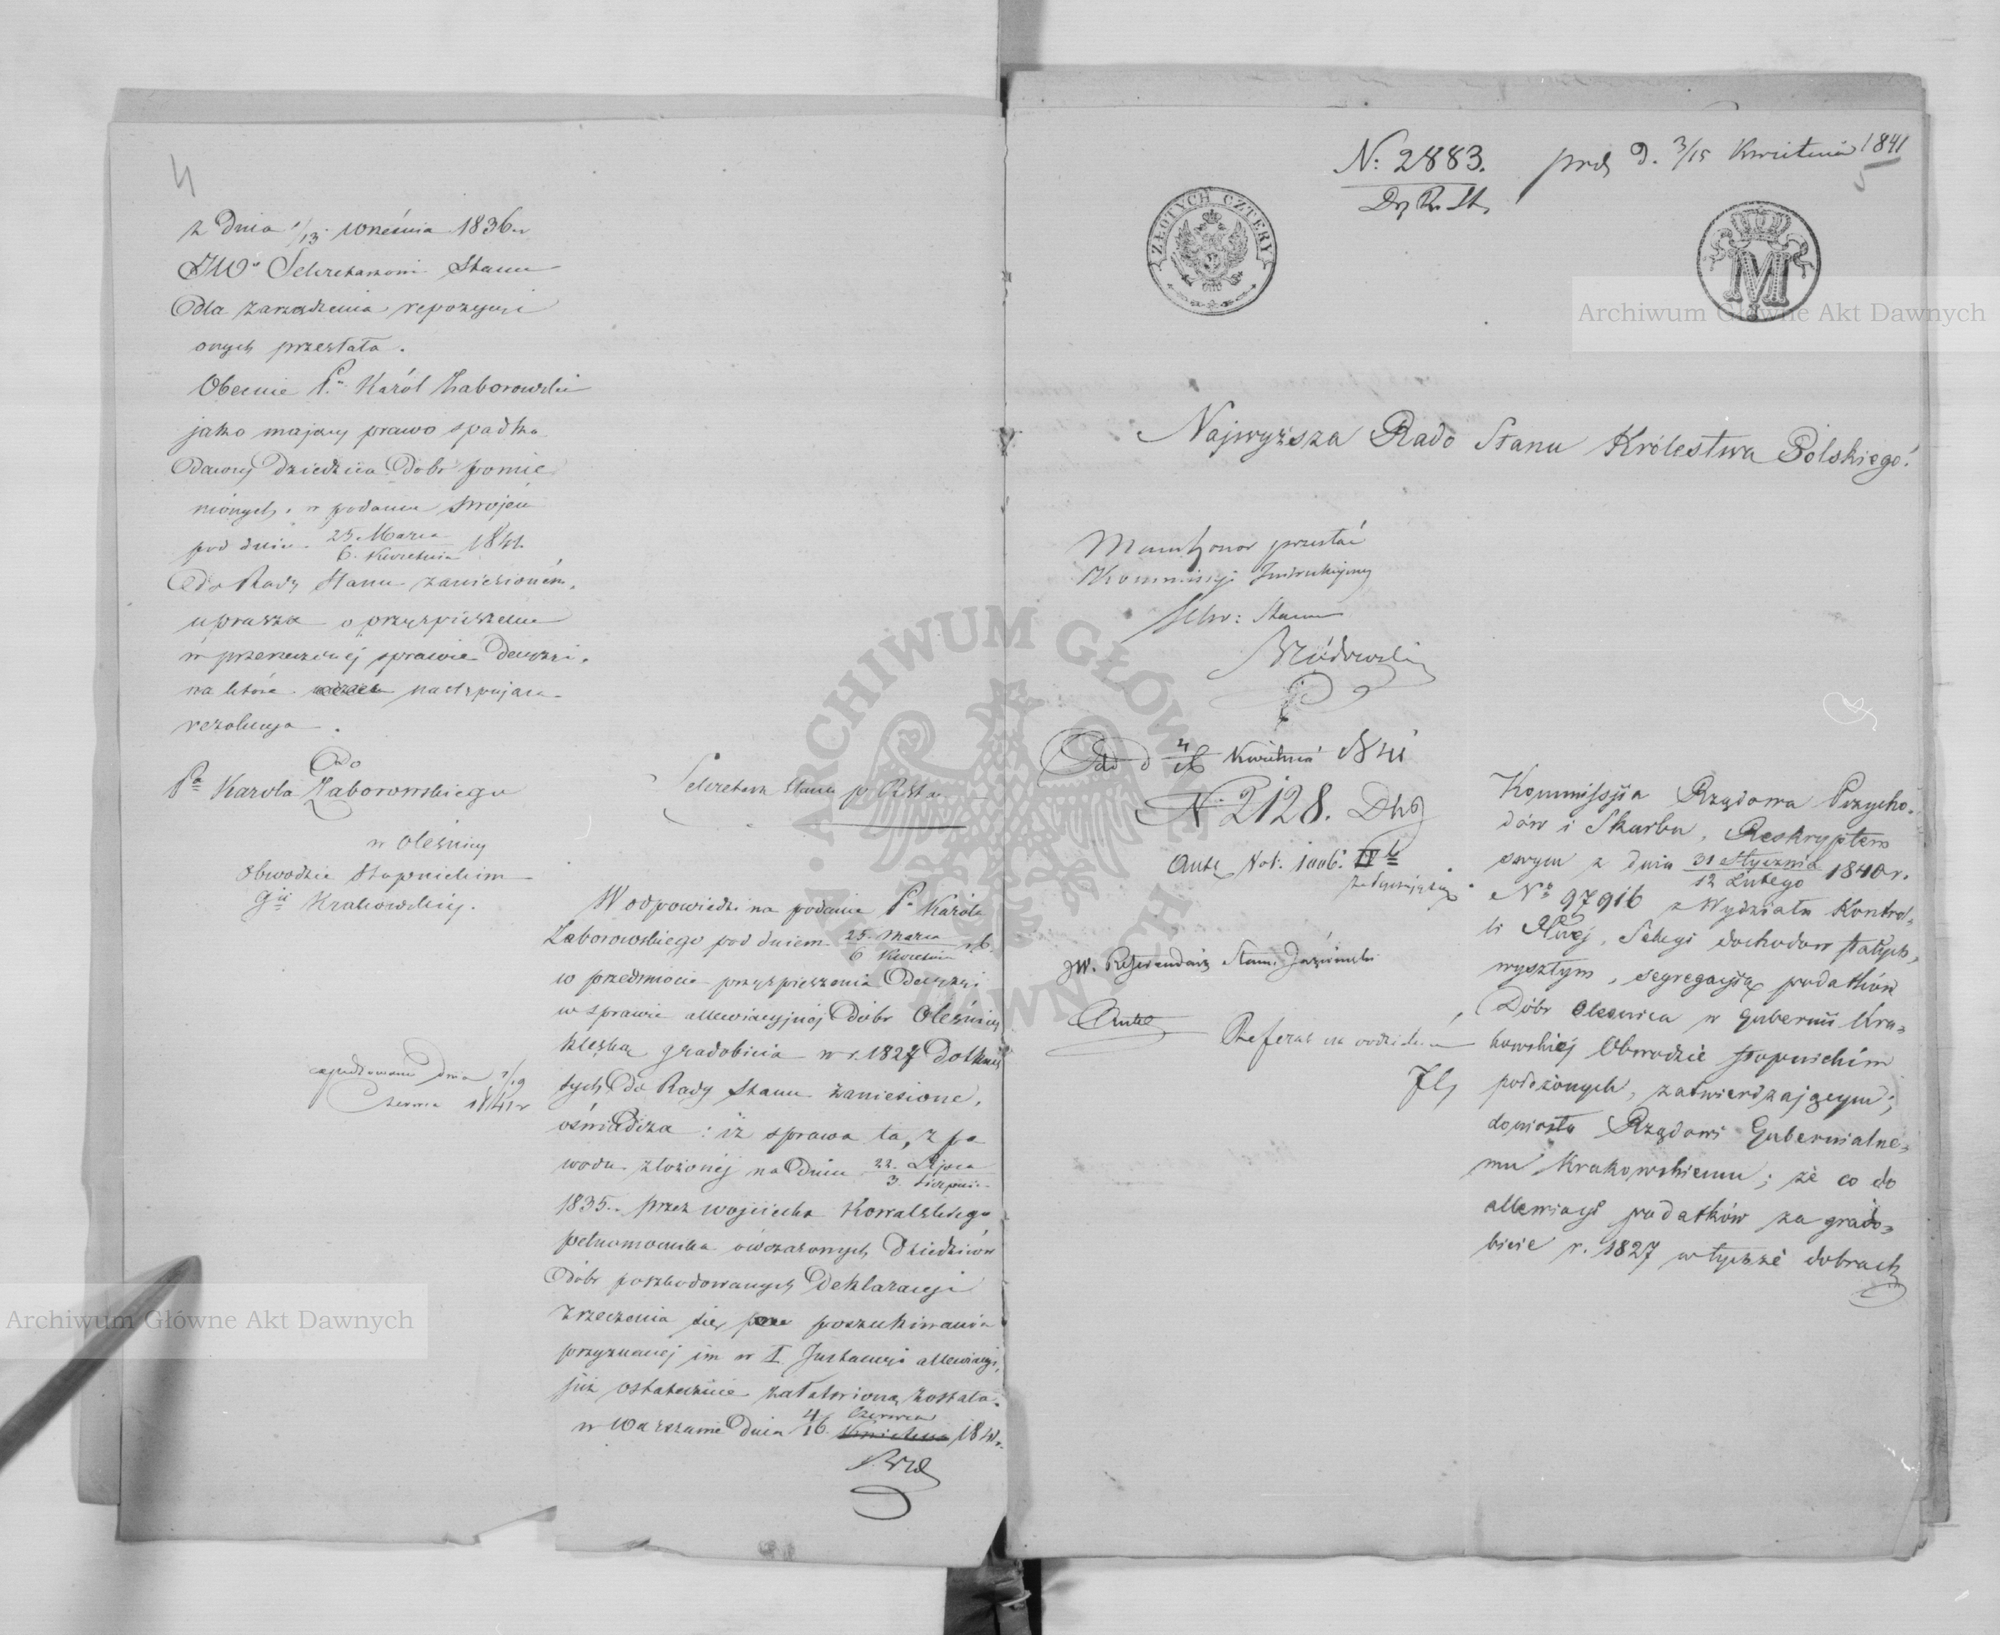 4
z dnia 1/13 Września 1836 r.
JWo Sekretarzowi Stanu
dla zarządzenia repozycyi
onych przesłała.
Obecnie P. Karól Zaborowski
jako mający prawo spadko
dawcy dziedzica Dobr pomie
nionych, w podaniu swojem
pod dniem 25 Marca / 6 Kwietnia 1841
do Rady Stanu zaniesionem,
uprasza o przyspieszenie
w przerzeczonej sprawie decyzyi,
na które następująca
rezolucya.
Do
Pa Karola Zaborowskiego
w Oleśnicy
Obwodzie Stopnickim
Gii Krakowskiej.
expedyowano dnia 7/19
Czerwca 1841 r
Sekretarz Stanu
W odpowiedzi na podanie Pa Karóla
Zaborowskiego pod dniem 25 Marca / 6 Kwietnia r. b.
w przedmiocie przyspieszenia Decyzyi
w sprawie allewiacyjnej Dóbr Oleśnicy
klęską gradobicia w r. 1827 dotknię
tych do Rady Stanu zaniesione,
oświadcza: iż sprawa ta, z po
wodu złożonej na dniu 22 Lipca / 3 Sierpnia
1835 przez Wojciecha Kowalskiego
pełnomocnika ówczasowych Dziedziców
Dóbr poszkodowanych Deklaracyi
zrzeczenia się poszukiwania
przyznanej im w I. Instancyi allewiacyi,
już ostatecznie załatwioną została.
w Warszawie dnia 4/16 Czerwca Kwietnia 1841 r.
N: 2883. prds d. 3/15 Kwietnia 1841
5
ZŁOTYCH CZTERY
M
Najwyższa Rado Stanu Królestwa Polskiego!
Mam honor przesłać
Kommissyi Instrukcyjney
Sekr: Stanu
Brzózowski
Odd d 4/16 Kwietnia 1841
No 2128.
Ante Vol: 1006
JW. Referendarz Stanu Jasiński
Ante
Referat na oddzielnie
Kommissyia Rządowa Przycho-
dów i Skarbu, Reskryptem
swym z dnia 31 Stycznia / 12 Lutego 1840 r.
No 97916 z Wydziału Kontrol-
li Sekcyi dochodów stałych,
wyszłym, segregacyią podatków
Dóbr Olesnica w Gubernii Kra-
kowskiej Obwodzie Stopnickim
położonych, zatwierdzającym;
doniosła Rządowi Gubernialne-
mu Krakowskiemu; że co do
allewiacyi podatków za grado-
bicie r. 1827 w tychże dobrach
Archiwum Główne Akt Dawnych
Archiwum Główne Akt Dawnych